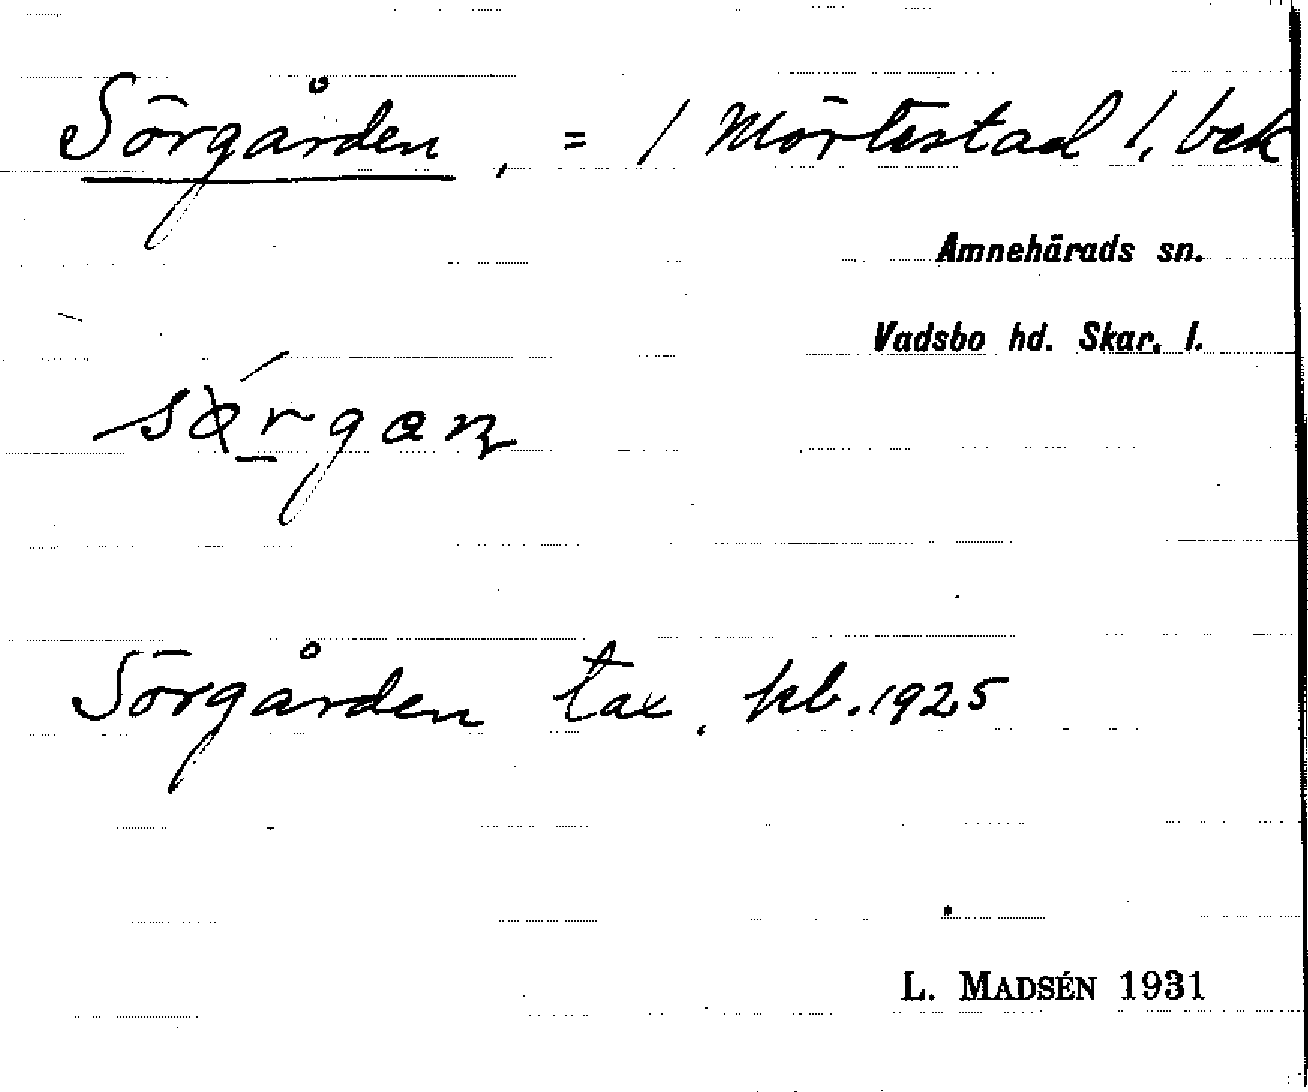 Sörgården, = / Mörtestad /, bek
Amnehärads sn.
Vadsbo hd. Skar. l.
Sörgården tax. kb. 1925
L. MADSÉN 1931